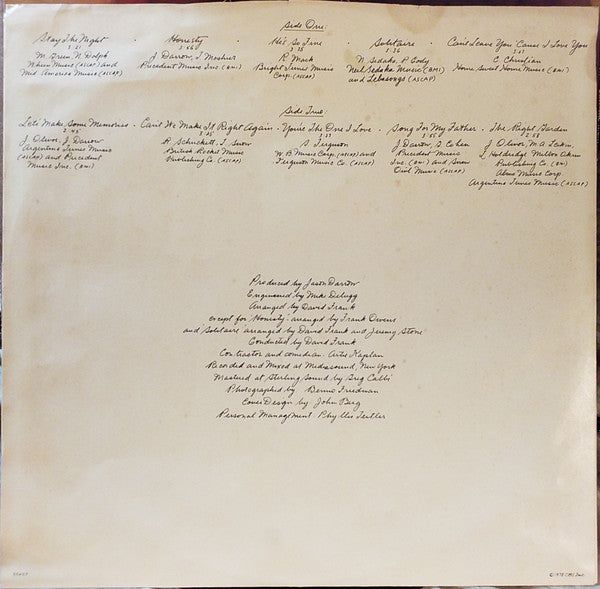 Side One
Stay The Night · Honesty · He's So Fine · Solitaire · Can't Leave You 'Cause I Love You
3:21 3:56 3:36
M. Green, N. Dolph J. Darrow, J. Mosher R. Mack N. Sedaka, P. Cody C. Christian
When Music (ASCAP) and President Music Inc. (BMI) Bright Tunes Music Neil Sedaka Music (BMI) Home Sweet Home Music (BMI)
Mid America Music (ASCAP) Corp. (ASCAP) and Lebsongs (ASCAP)
Side Two
Let's Make Some Memories · Can't We Make It Right Again · You're The One I Love · Song For My Father · The Right Garden
J. Olivor, J. Darrow R. Schuckett, T. Snow S. Ferguson J. Darrow, S. Cohen J. Olivor, M.A. Leikin,
Argentina Tunes Music British Rocket Music W.B. Music Corp. (ASCAP) and President Music L. Holdridge Millon Leikin
(ASCAP) and President Publishing Co. (ASCAP) Ferguson Music Co. (ASCAP) Inc. (BMI) and Snow Publishing Co. (BMI)
Music Inc. (BMI) Owl Music (ASCAP) Alma Music Corp
Argentina Tunes Music (ASCAP)
Produced by Jason Darrow
Engineered by Mike Delugg
Arranged by David Frank
except for "Honesty" arranged by Frank Owens
and "Solitaire" arranged by David Frank and Jeremy Stone
Conducted by David Frank
Contractor and comedian · Artie Kaplan
Recorded and Mixed at Mediasound, New York
Mastered at Sterling Sound by Greg Calbi
Photographed by Benno Friedman
Cover Design by John Berg
Personal Management · Phyllis Teitler
© 1978 CBS Inc.